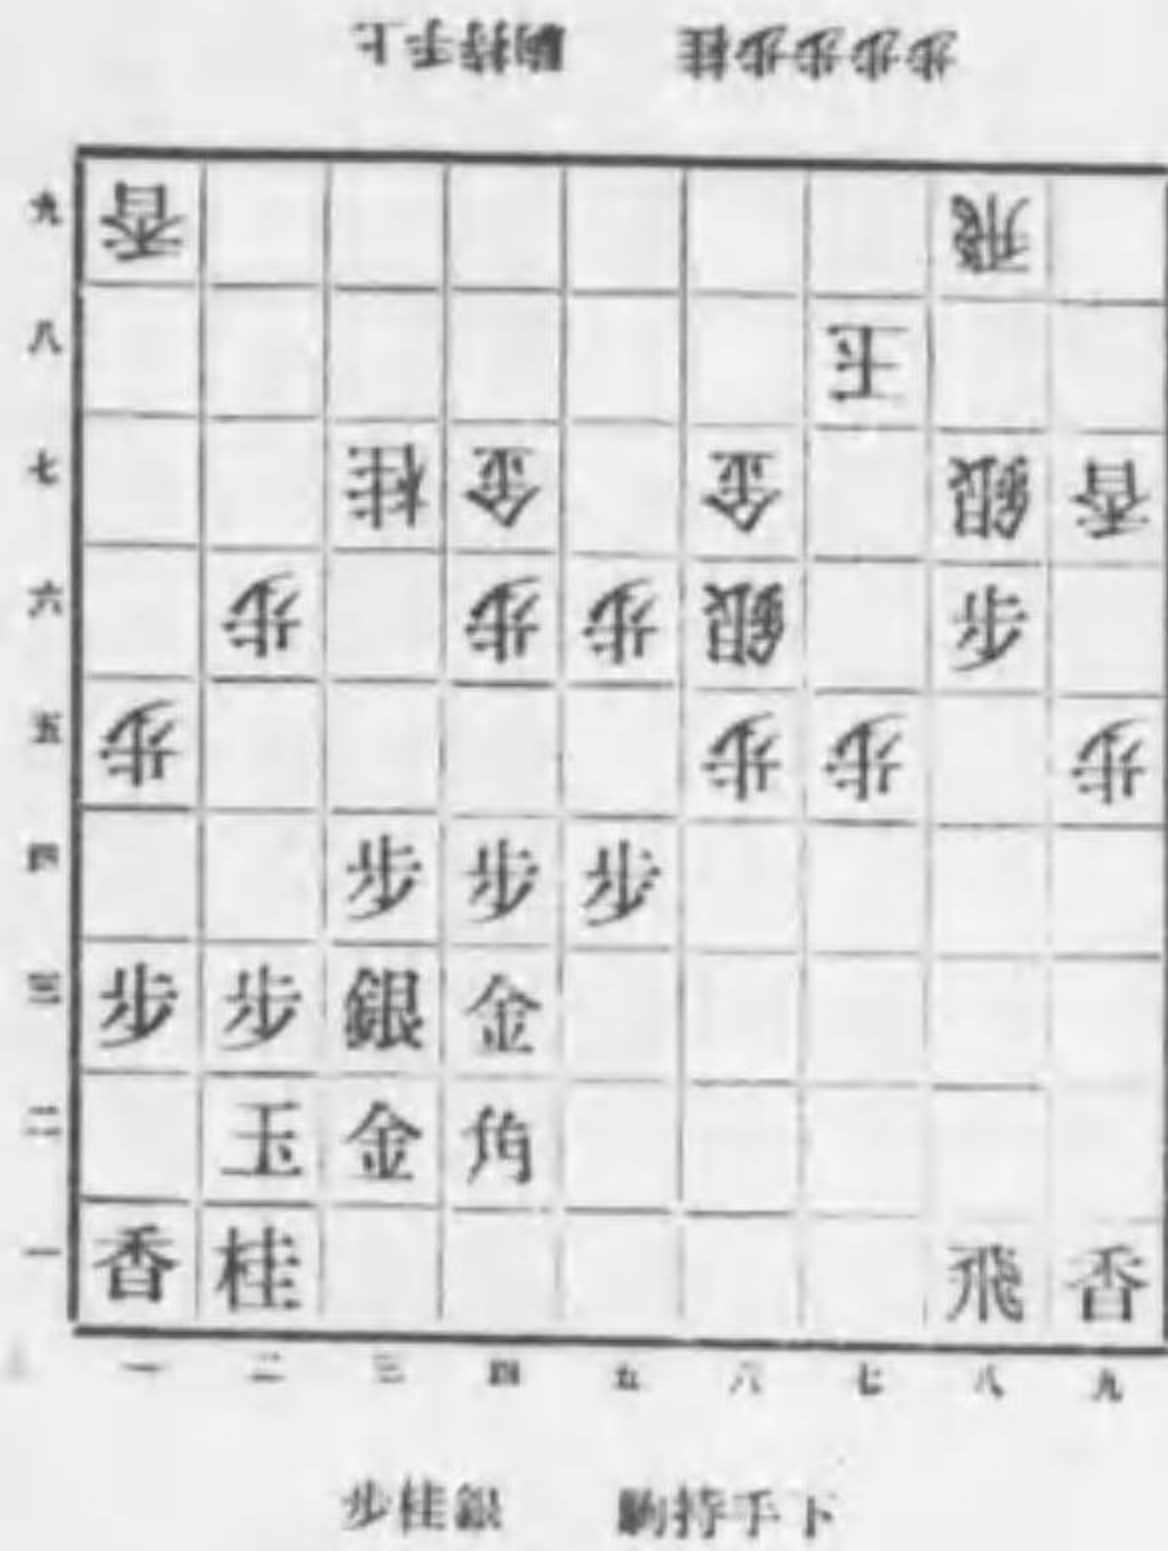 上手持駒 桂步步步步
九 香 飛
八 玉
七 桂 金 金 銀 香
六 步 步 步 銀 步
五 步 步 步 步
四 步 步 步
三 步 步 銀 金
二 玉 金 角
一 香 桂 飛 香
一 二 三 四 五 六 七 八 九
下手持駒 銀桂步